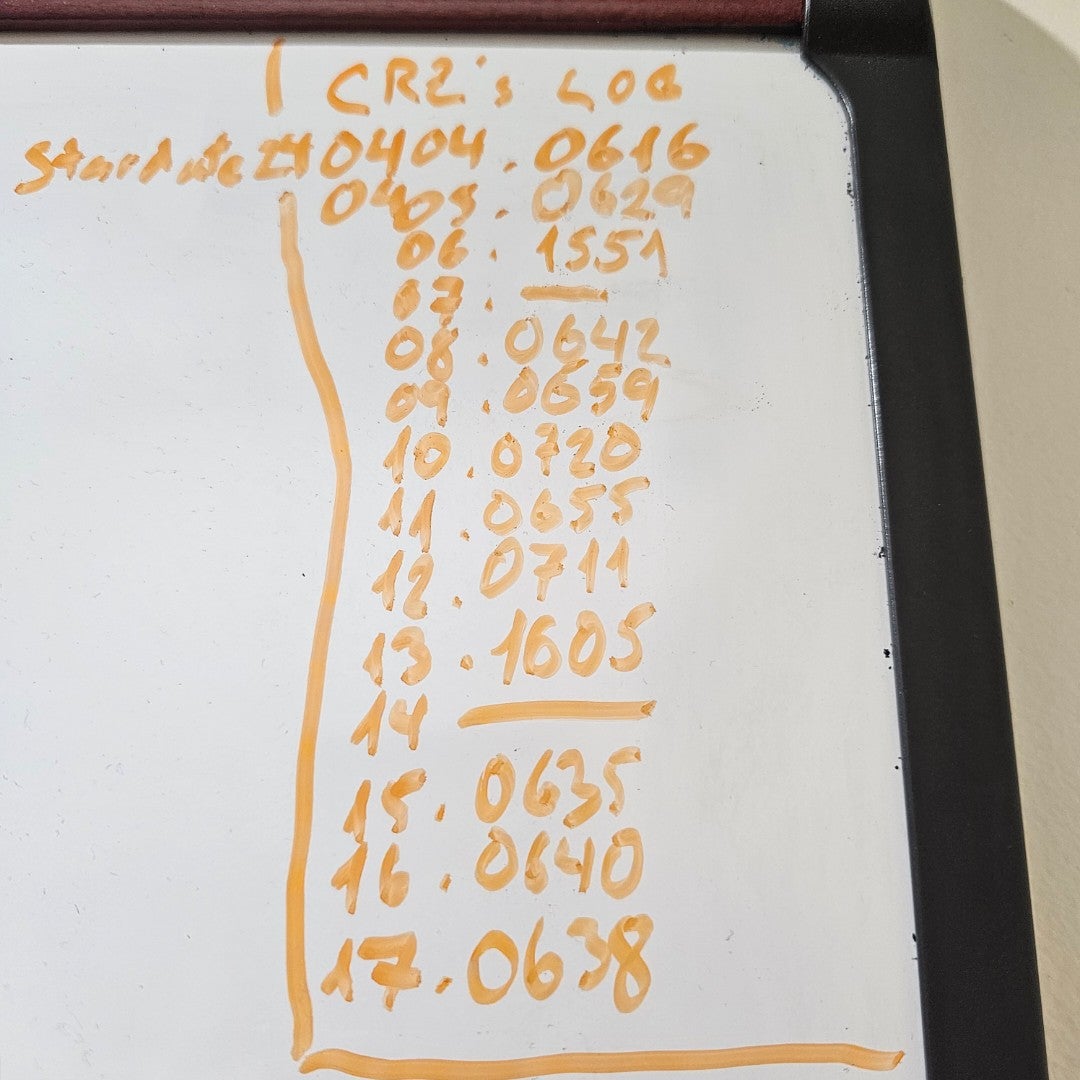 CRZ's LOG
Stardate 240404.0616
0405.0629
06.1551
07.—
08.0642
09.0659
10.0720
11.0655
12.0711
13.1605
14 —
15.0635
16.0640
17.0638